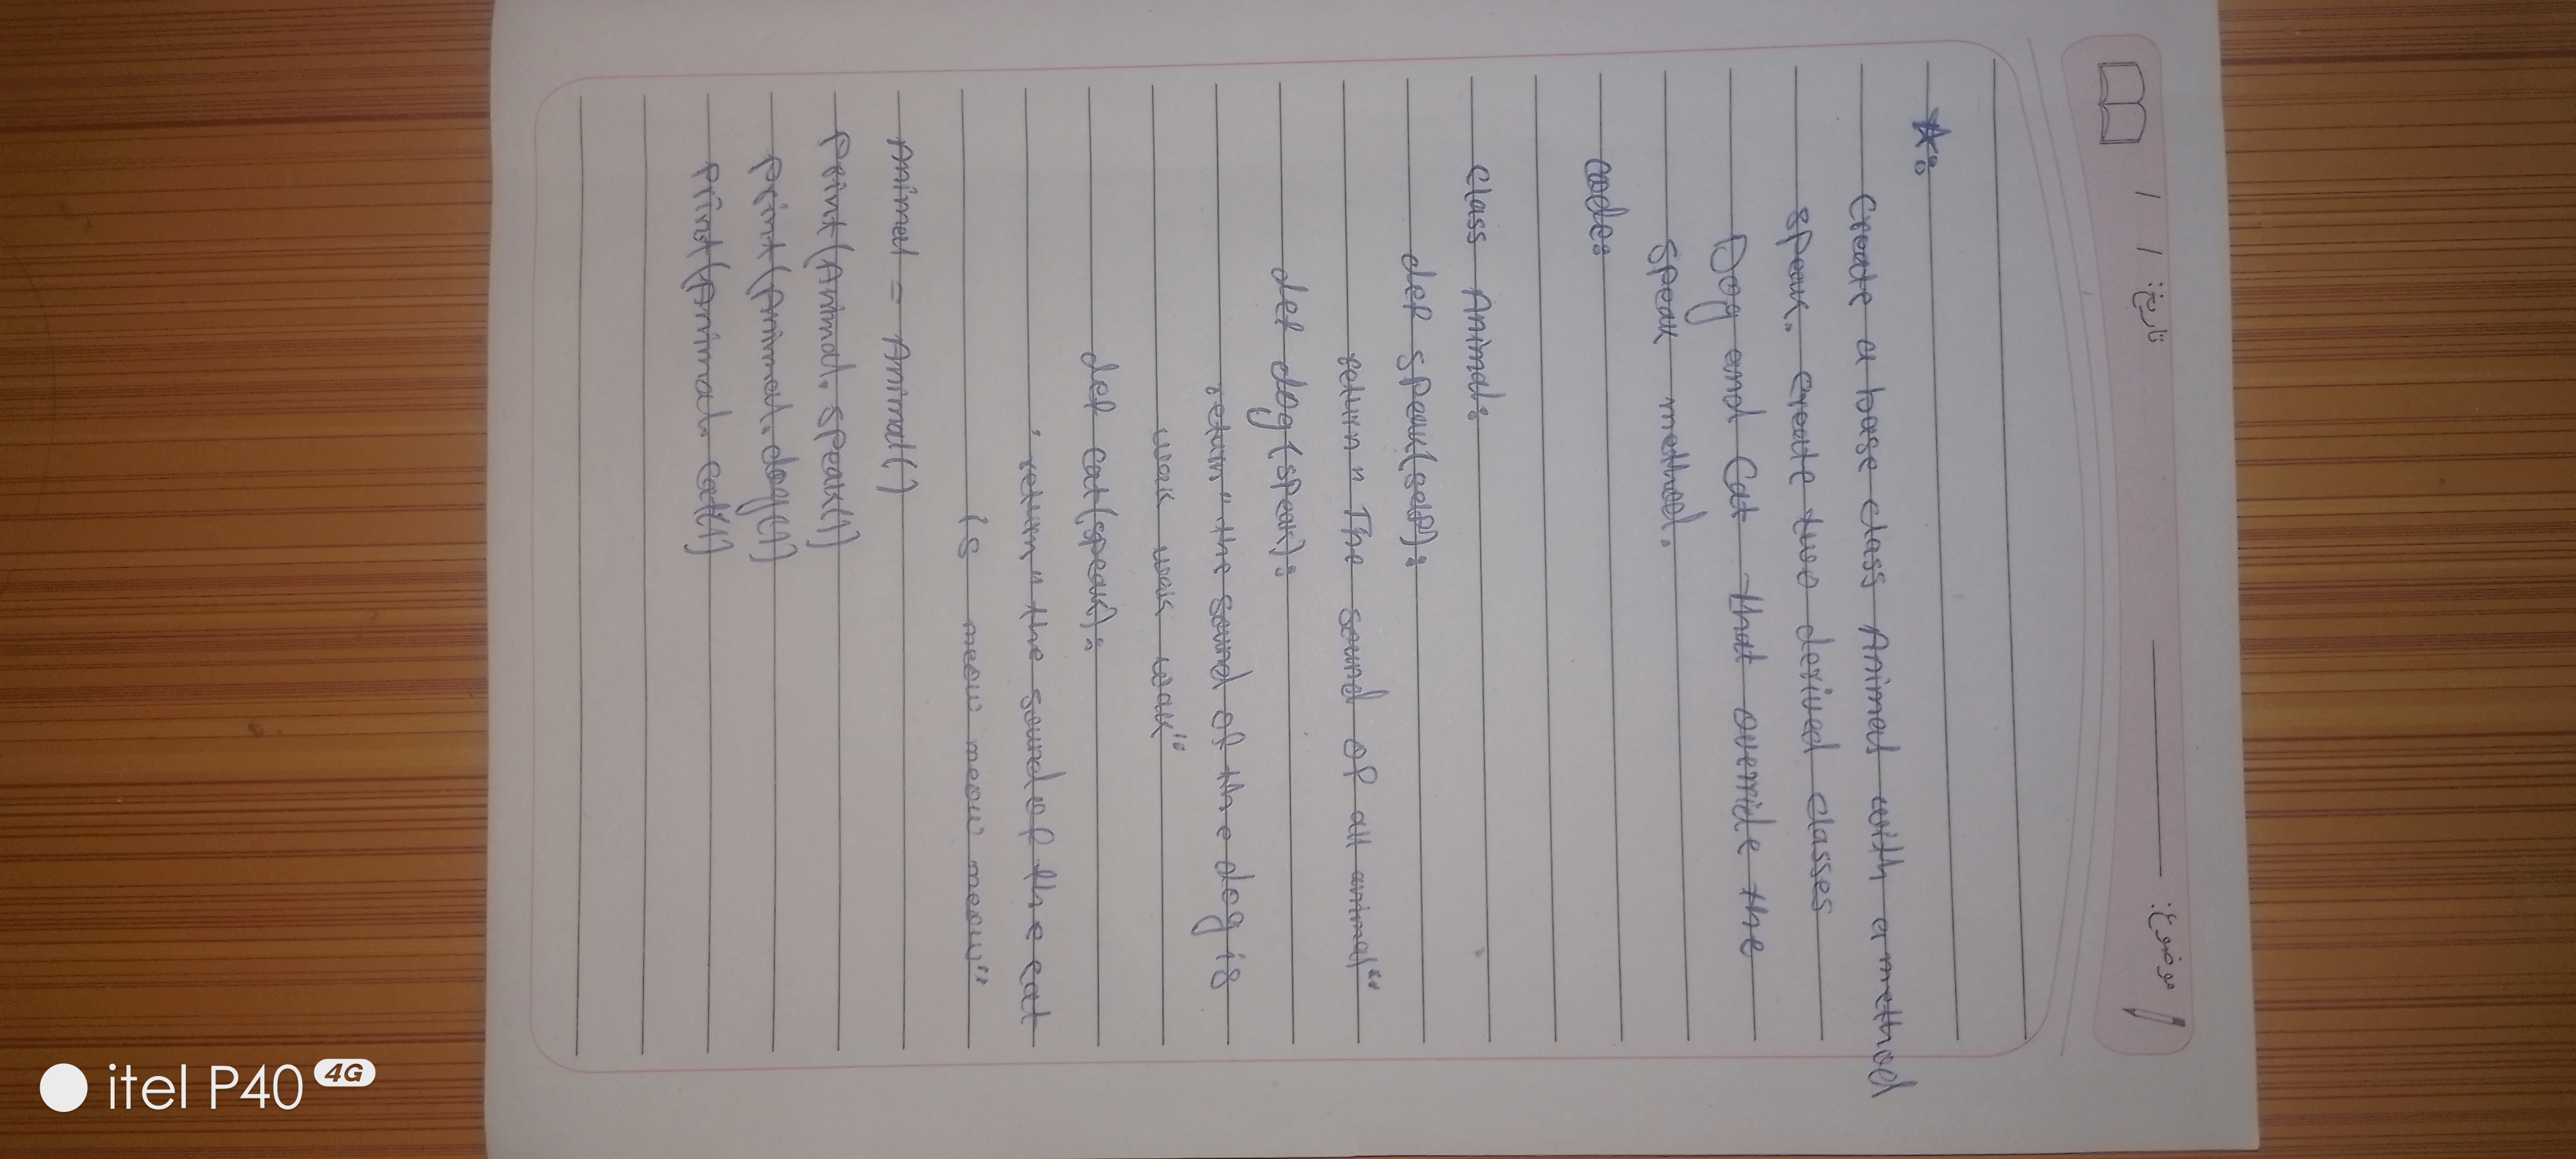 تاریخ: / /
موضوع:
*:
Create a base class Animal with a method
speak. create two derived classes
Dog and Cat that override the
speak method.
code:
class Animal:
def speak(self):
return " The sound of all animal"
def dog(speak):
return " the sound of the dog is
wak wak wak"
def cat(speak):
return " the sound of the cat
is meow meow meow"
Animal = Animal()
print(Animal.speak())
print(Animal.dog())
print(Animal.cat())
itel P40 4G